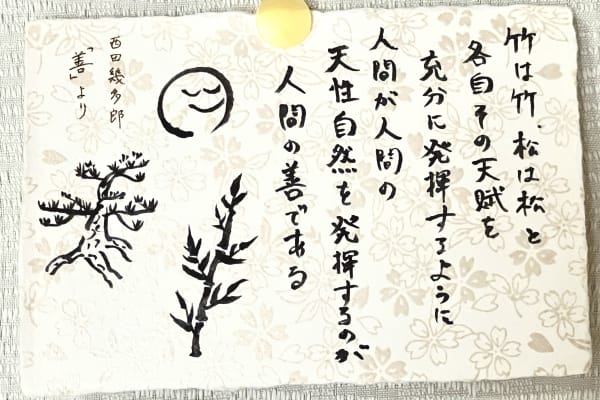 竹は竹、松は松と
各自その天賦を
充分に発揮するように
人間が人間の
天性自然を発揮するのが
人間の善である
西田幾多郎
「善」より